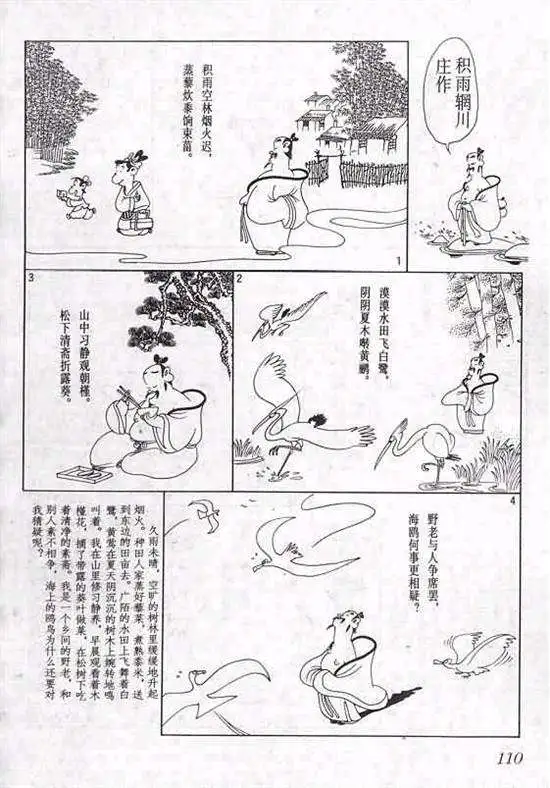 积雨辋川
庄作
积雨空林烟火迟,
蒸藜炊黍饷东菑。
1
2
漠漠水田飞白鹭,
阴阴夏木啭黄鹂。
3
山中习静观朝槿。
松下清斋折露葵。
4
野老与人争席罢,
海鸥何事更相疑?
久雨未晴,空旷的树林里缓缓地升起
烟火。种田人家蒸好藜菜,煮熟黍米,送
到东边的田亩去。广陌的水田上飞舞着白
鹭,黄莺在夏天阴沉沉的树木上婉转地鸣
叫着。我在山里修习静养,早晨观看着木
槿花,摘了带露的葵叶做菜,在松树下吃
着清净的素斋。我是一个乡间的野老,和
别人素不相争,海上的鸥鸟为什么还要对
我猜疑呢?
110